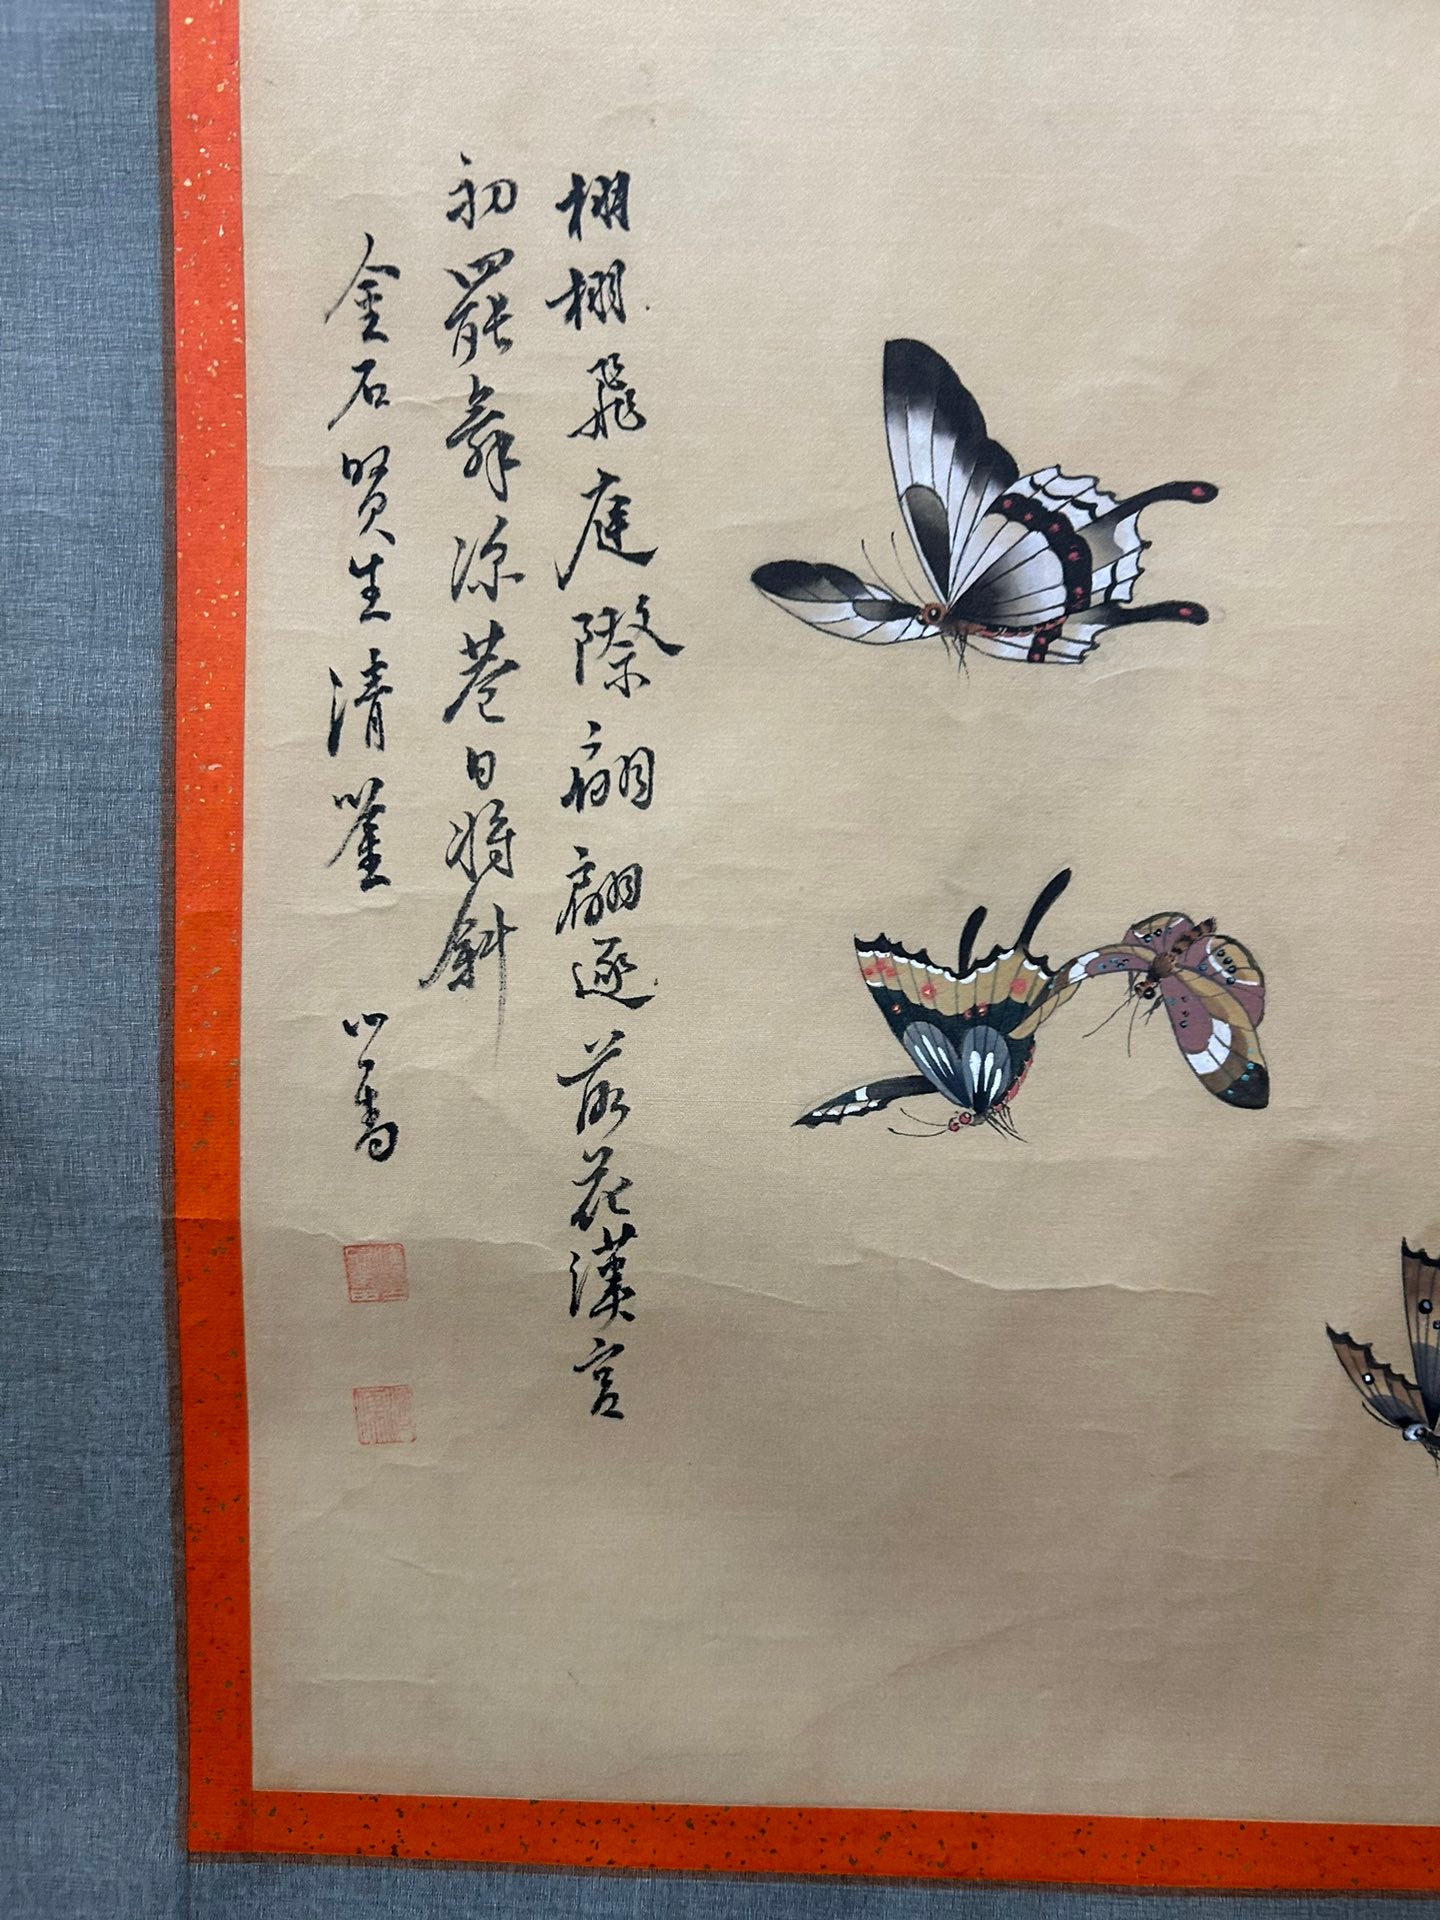 栩栩飛庭際翩翩逐落花漢宮
初罷舞梁苑日將斜
金石賢生清鑒 心畬